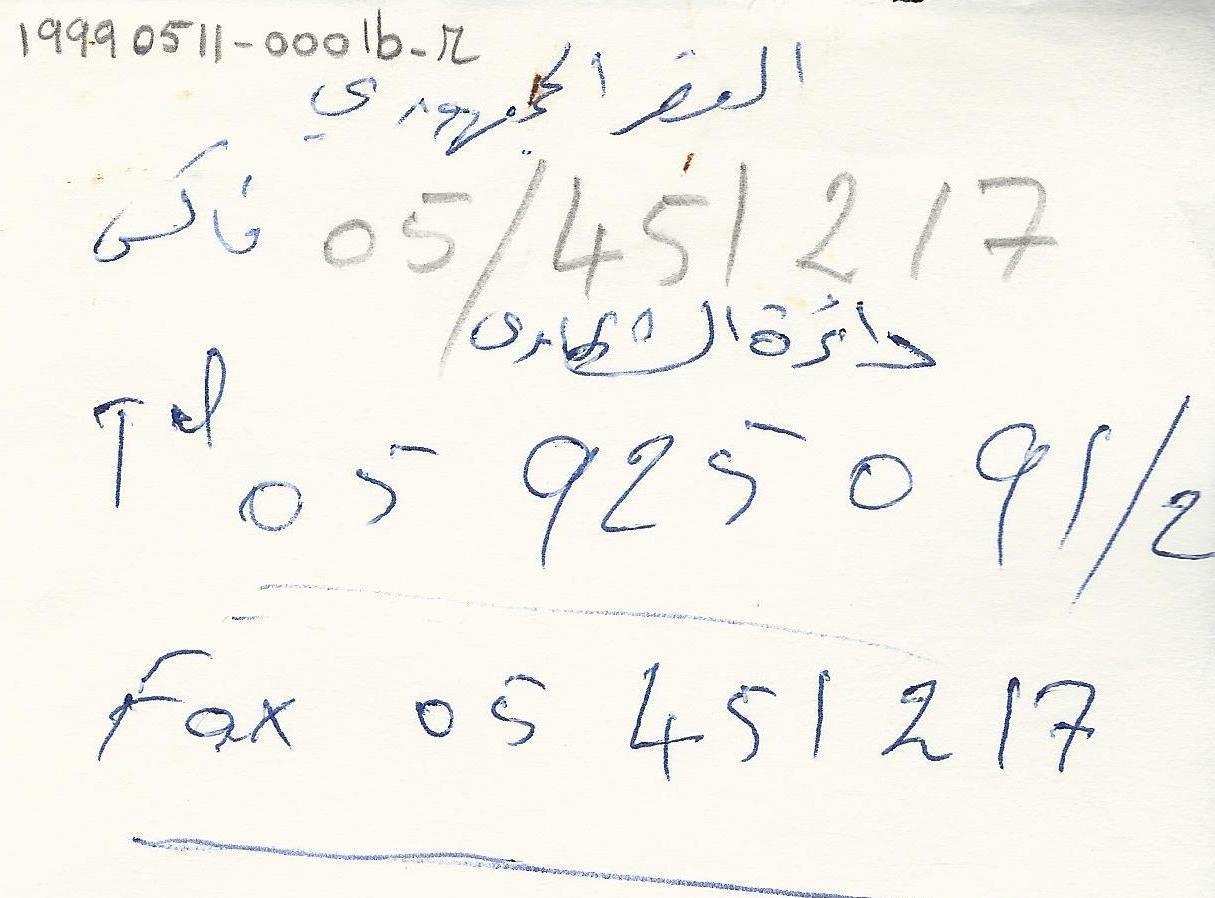 19990511-0001b-r
القصر الجمهوري
فاكس 05/451217
دائرة الشكاوى
Tel 05 925091/2
Fax 05 451217